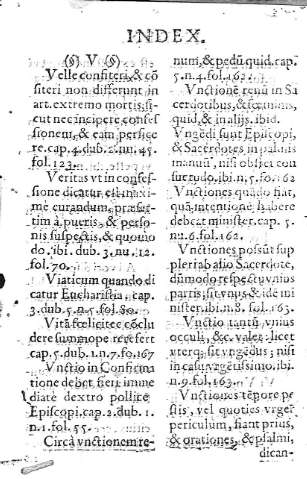 INDEX.
(§) V (§)
Velle confiteri, & cõ
fiteri non differunt in
art. extremo mortis, si-
cut nec incipere confes
sionem, & eam perfice
re. cap. 4. dub. 2. nu. 45.
fol. 123.
Veritas vt in confes-
sione dicatur est maxi-
me curandum, præser-
tim à pueris, & perso-
nis suspectis, & quomo
do. ibi. dub. 3. nu. 12.
fol. 70.
Viaticum quando di
catur Eucharistia, cap.
3. dub. 5. n. 5. fol. 80.
Vitã fœlicitee cõclu
dere summope refert
cap. 5. dub. 1. n. 7. fo. 167
Vnctio in Confirma
tione debet fieri imme
diatè dextro pollice
Episcopi. cap. 2. dub. 1.
n. 1. fol. 55.
Circà vnctionem re-
num, & pedũ quid. cap.
5. n. 4. fol. 162.
Vnctionē renũ in Sa
cerdotibus, & fœminis,
quid, & in alijs. ibid.
Vngēdi sunt Episcopi,
& Sacerdotes in palmis
manuũ, nisi obstet con
suetudo. ibi. n. 5. fo. 162
Vnctiones quādo fiāt,
quā intentionē habere
debeat minister. cap. 5.
nu. 6. fol. 162.
Vnctiones possũt sup
pleri ab alio Sacerdote,
dũmodo respectu vnius
partis, sit vnus & idē mi
nister. ibi. n. 8. fol. 163.
Vnctio tantũ vnius
oculi, &c. valet: licet
vterq; sit vngēdus; nisi
in casu vrgētissimo. ibi.
n. 9. fol. 163.
Vnctiones tēpore pe
stis, vel quoties vrget
periculum, fiant prius,
& orationes, & psalmi,
dican-